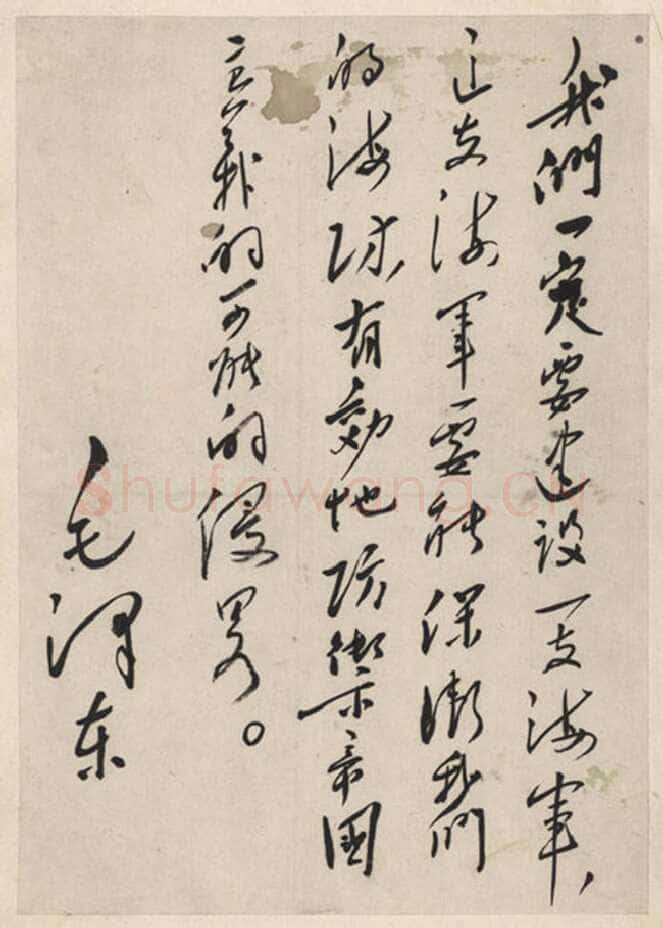 我們一定要建设一支海军，
这支海军要能保衛我們
的海防，有効地防御帝国
主义的可能的侵略。
毛泽东
Shufawang.CN